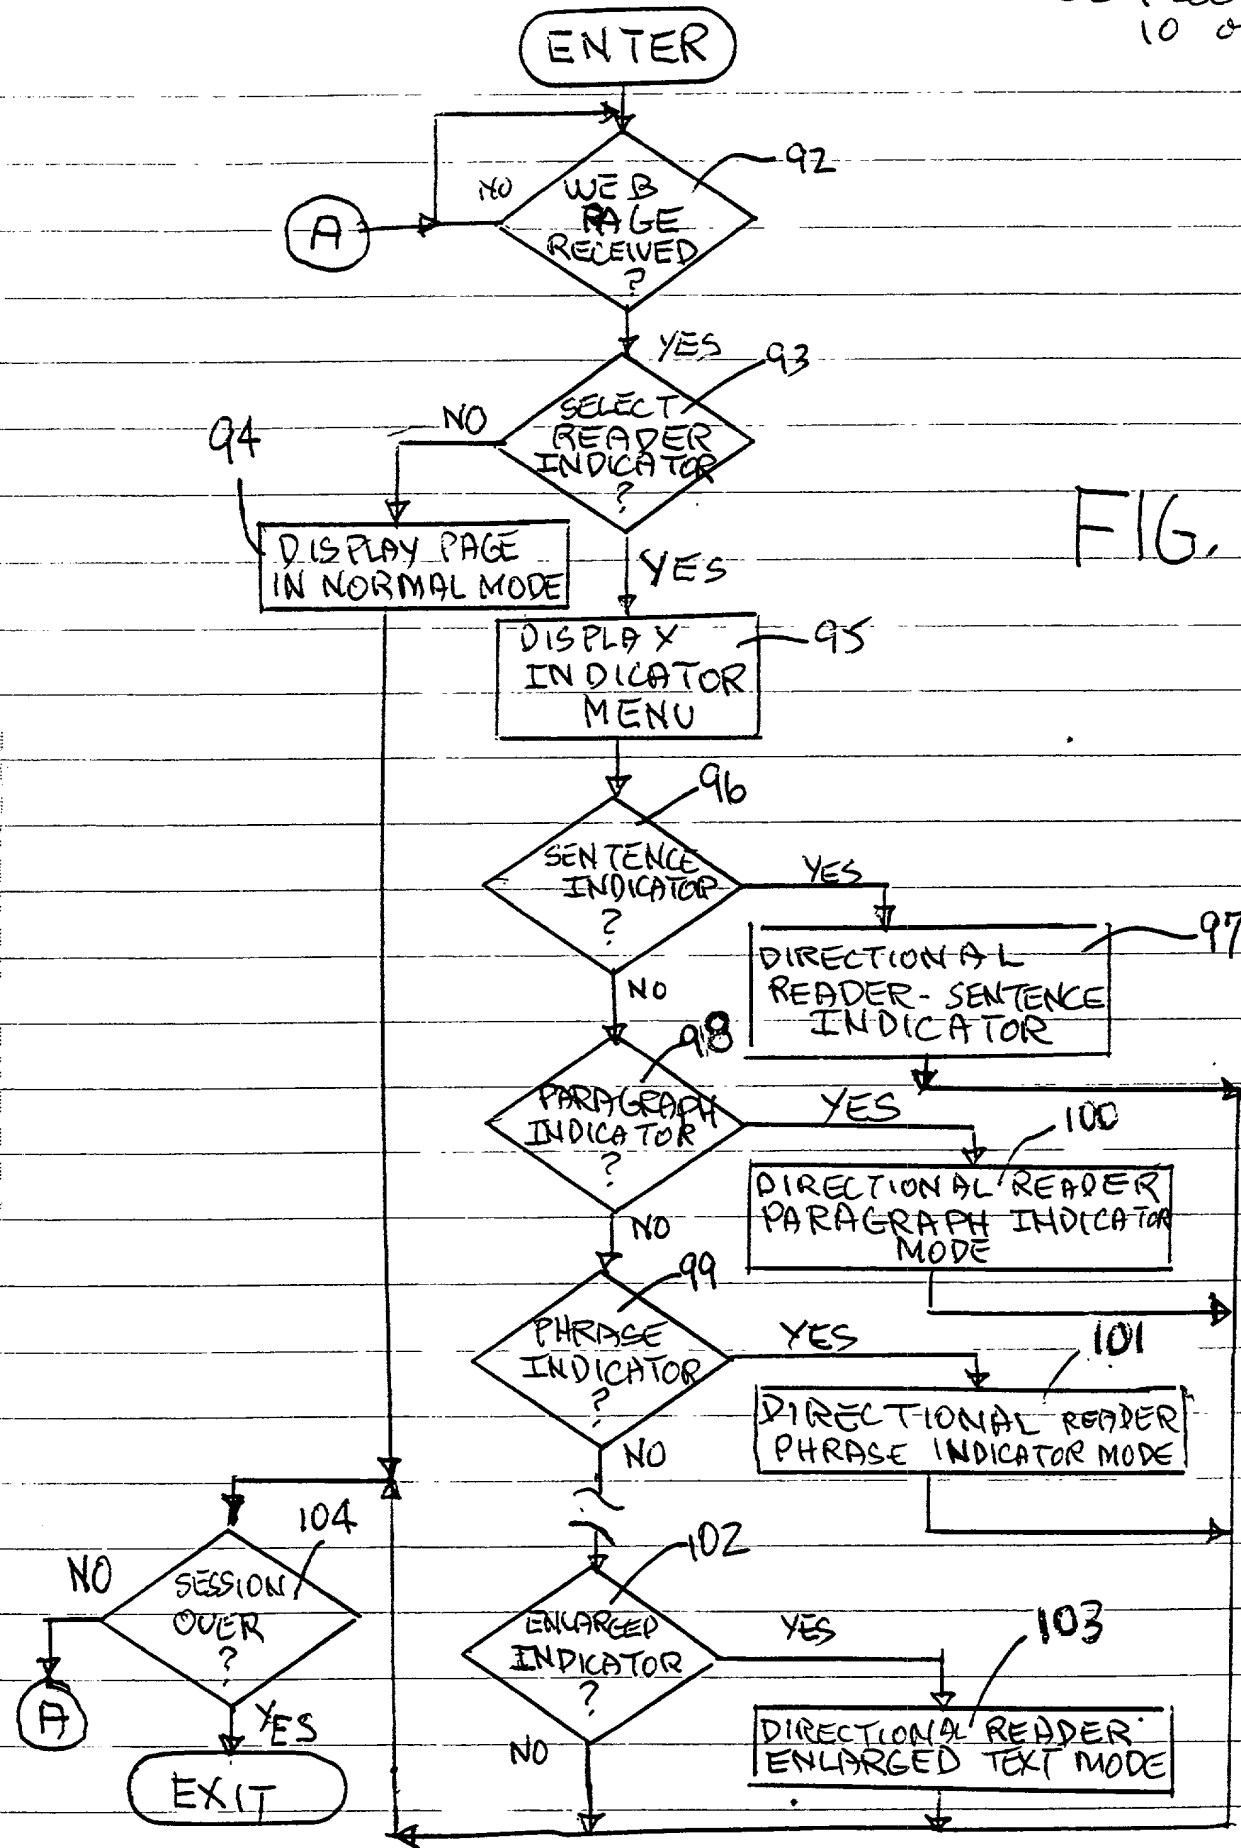 10
ENTER
92
NO
WEB
PAGE
RECEIVED
?
A
YES
93
NO
SELECT
READER
INDICATOR
?
94
FIG.
DISPLAY PAGE
IN NORMAL MODE
YES
DISPLAY
INDICATOR
MENU
95
96
SENTENCE
INDICATOR
?
YES
97
DIRECTIONAL
READER - SENTENCE
INDICATOR
NO
98
PARAGRAPH
INDICATOR
?
YES
100
DIRECTIONAL READER
PARAGRAPH INDICATOR
MODE
NO
99
PHRASE
INDICATOR
?
YES
101
DIRECTIONAL READER
PHRASE INDICATOR MODE
NO
104
NO
SESSION
OVER
?
102
ENLARGED
INDICATOR
?
YES
103
A
YES
NO
DIRECTIONAL READER
ENLARGED TEXT MODE
EXIT